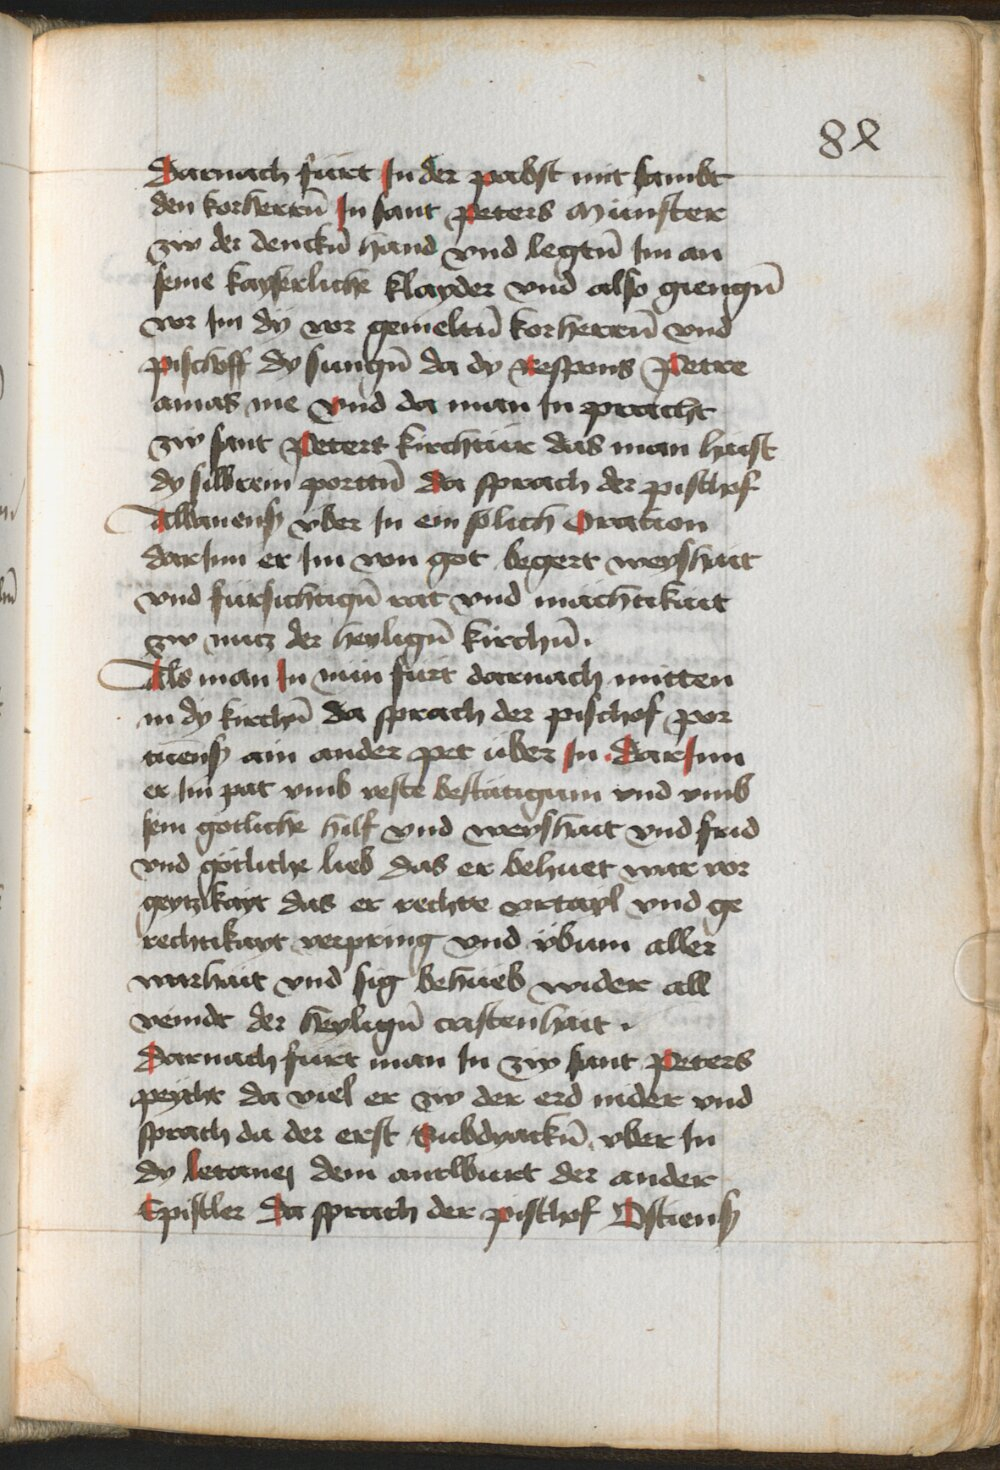 84
Darnach fürt In der pabst mit sambt
den korherrn̄ In sant Peters Münster
zw der denckn̄ hand vnd legtn̄ Im an
seine kayserliche klayder vnd also giengn̄
vor Im dy vor gemeltn̄ korherrn̄ vnd
pischoff dy sungn̄ da dy Respons Petre
amas me vnd da man In pracht
zw sant Peters kirchtür das man haist
dy silbrein porttn̄ da sprach der pischof
Albanensß vber In ein solich Oration
darInn er Im von got begert weyshait
vnd fürsichtign̄ rat vnd mächtikait
zw nutz der heylign̄ kirchn̄.
Als man In nün fürt darnach mitten
in dy kirchn̄ da sprach der pischof por
tuensß ain ander pet über In. DarInn
er Im pat vmb veste bestätigum vnd vmb
sein götliche hilf vnd weyshait vnd frid
vnd götliche lieb das er behuet wär vor
geytzikayt das er rechte vrtayl vnd ge
rechtikayt verpring vnd übum aller
warhait vnd sig behüeb wider all
veindt der heylign̄ cristenhait.
Darnach fürt man In zw sant Peters
peycht da viel er zw der erd nider vnd
sprach da der erst Subdyackn̄ vber In
dy letanej dem antburt der ander
Epistler Da sprach der pischof Ostiensß